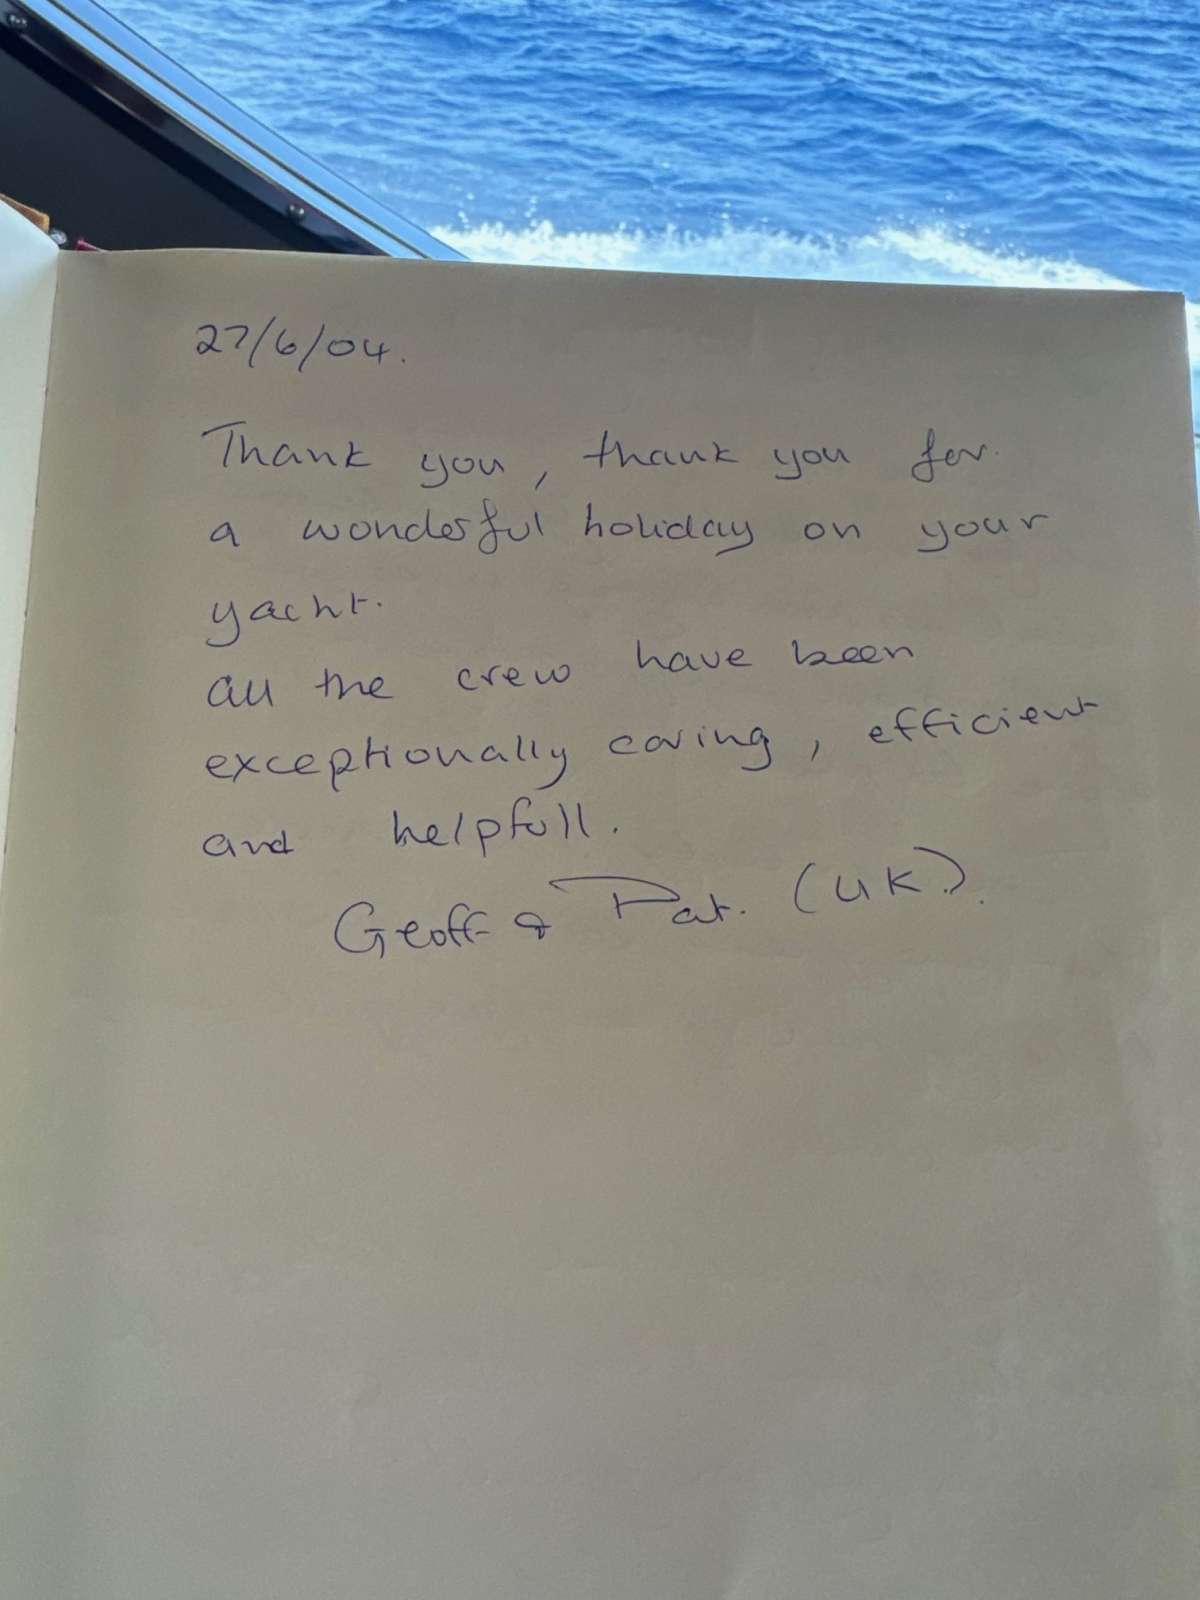 27/6/04.
Thank you, thank you for
a wonderful holiday on your
yacht.
all the crew have been
exceptionally caring, efficient
and helpfull.
Geoff & Pat. (UK).